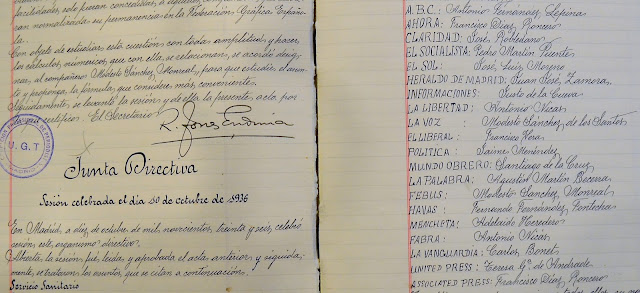 facilidades, solo puedan concederlas, a
can normalizada su permanencia en la Federación Gráfica Españo-
la.
Con objeto de estudiar, esta cuestión con toda amplitud, y hacer
los cálculos numéricos, que con ella, se relacionan, se acordó desig-
nar, al compañero Modesto Sánchez Monreal, para que estudie, el asun-
to y proponga, la fórmula que considere, más conveniente.
Seguidamente, se levantó la sesión y de ella, la presente, acta, por
certifico. El Secretario
U.G.T
Junta Directiva
Sesión celebrada el día 10 de octubre de 1936
En Madrid, a diez, de octubre, de mil, novecientos, treinta y seis, celebró
sesión, este, organismo directivo.
Abierta, la sesión, fue, leída y aprobada el acta anterior, y seguida-
mente, se trataron, los asuntos, que se citan a continuación.
Servicio Sanitario
A.B.C.: Antonio Fernández, Lepina
AHORA: Francisco Díaz, Roncero
CLARIDAD: José, Robledano
EL SOCIALISTA: Pedro Martín Puente
EL SOL: José, Luis, Moreno
HERALDO DE MADRID: Juan José, Zamora,
INFORMACIONES: Justo de la Cueva
LA LIBERTAD: Antonio Nicás
LA VOZ: Modesto Sánchez, de los Santos
EL LIBERAL: Francisco Vera
POLITICA: Jaime Menéndez
MUNDO OBRERO: Santiago de la Cruz
LA PALABRA: Agustín Martín Becerra
FEBUS: Modesto Sánchez, Monreal
HAVAS: Fernando Fernández, Fontecha
MENCHETA: Adelaido Heredero
FABRA: Antonio Nicás
LA VANGUARDIA: Carlos, Bonet
UNITED PRESS: Teresa Gª. de Andrade
ASSOCIATED PRESS: Francisco Díaz, Roncero